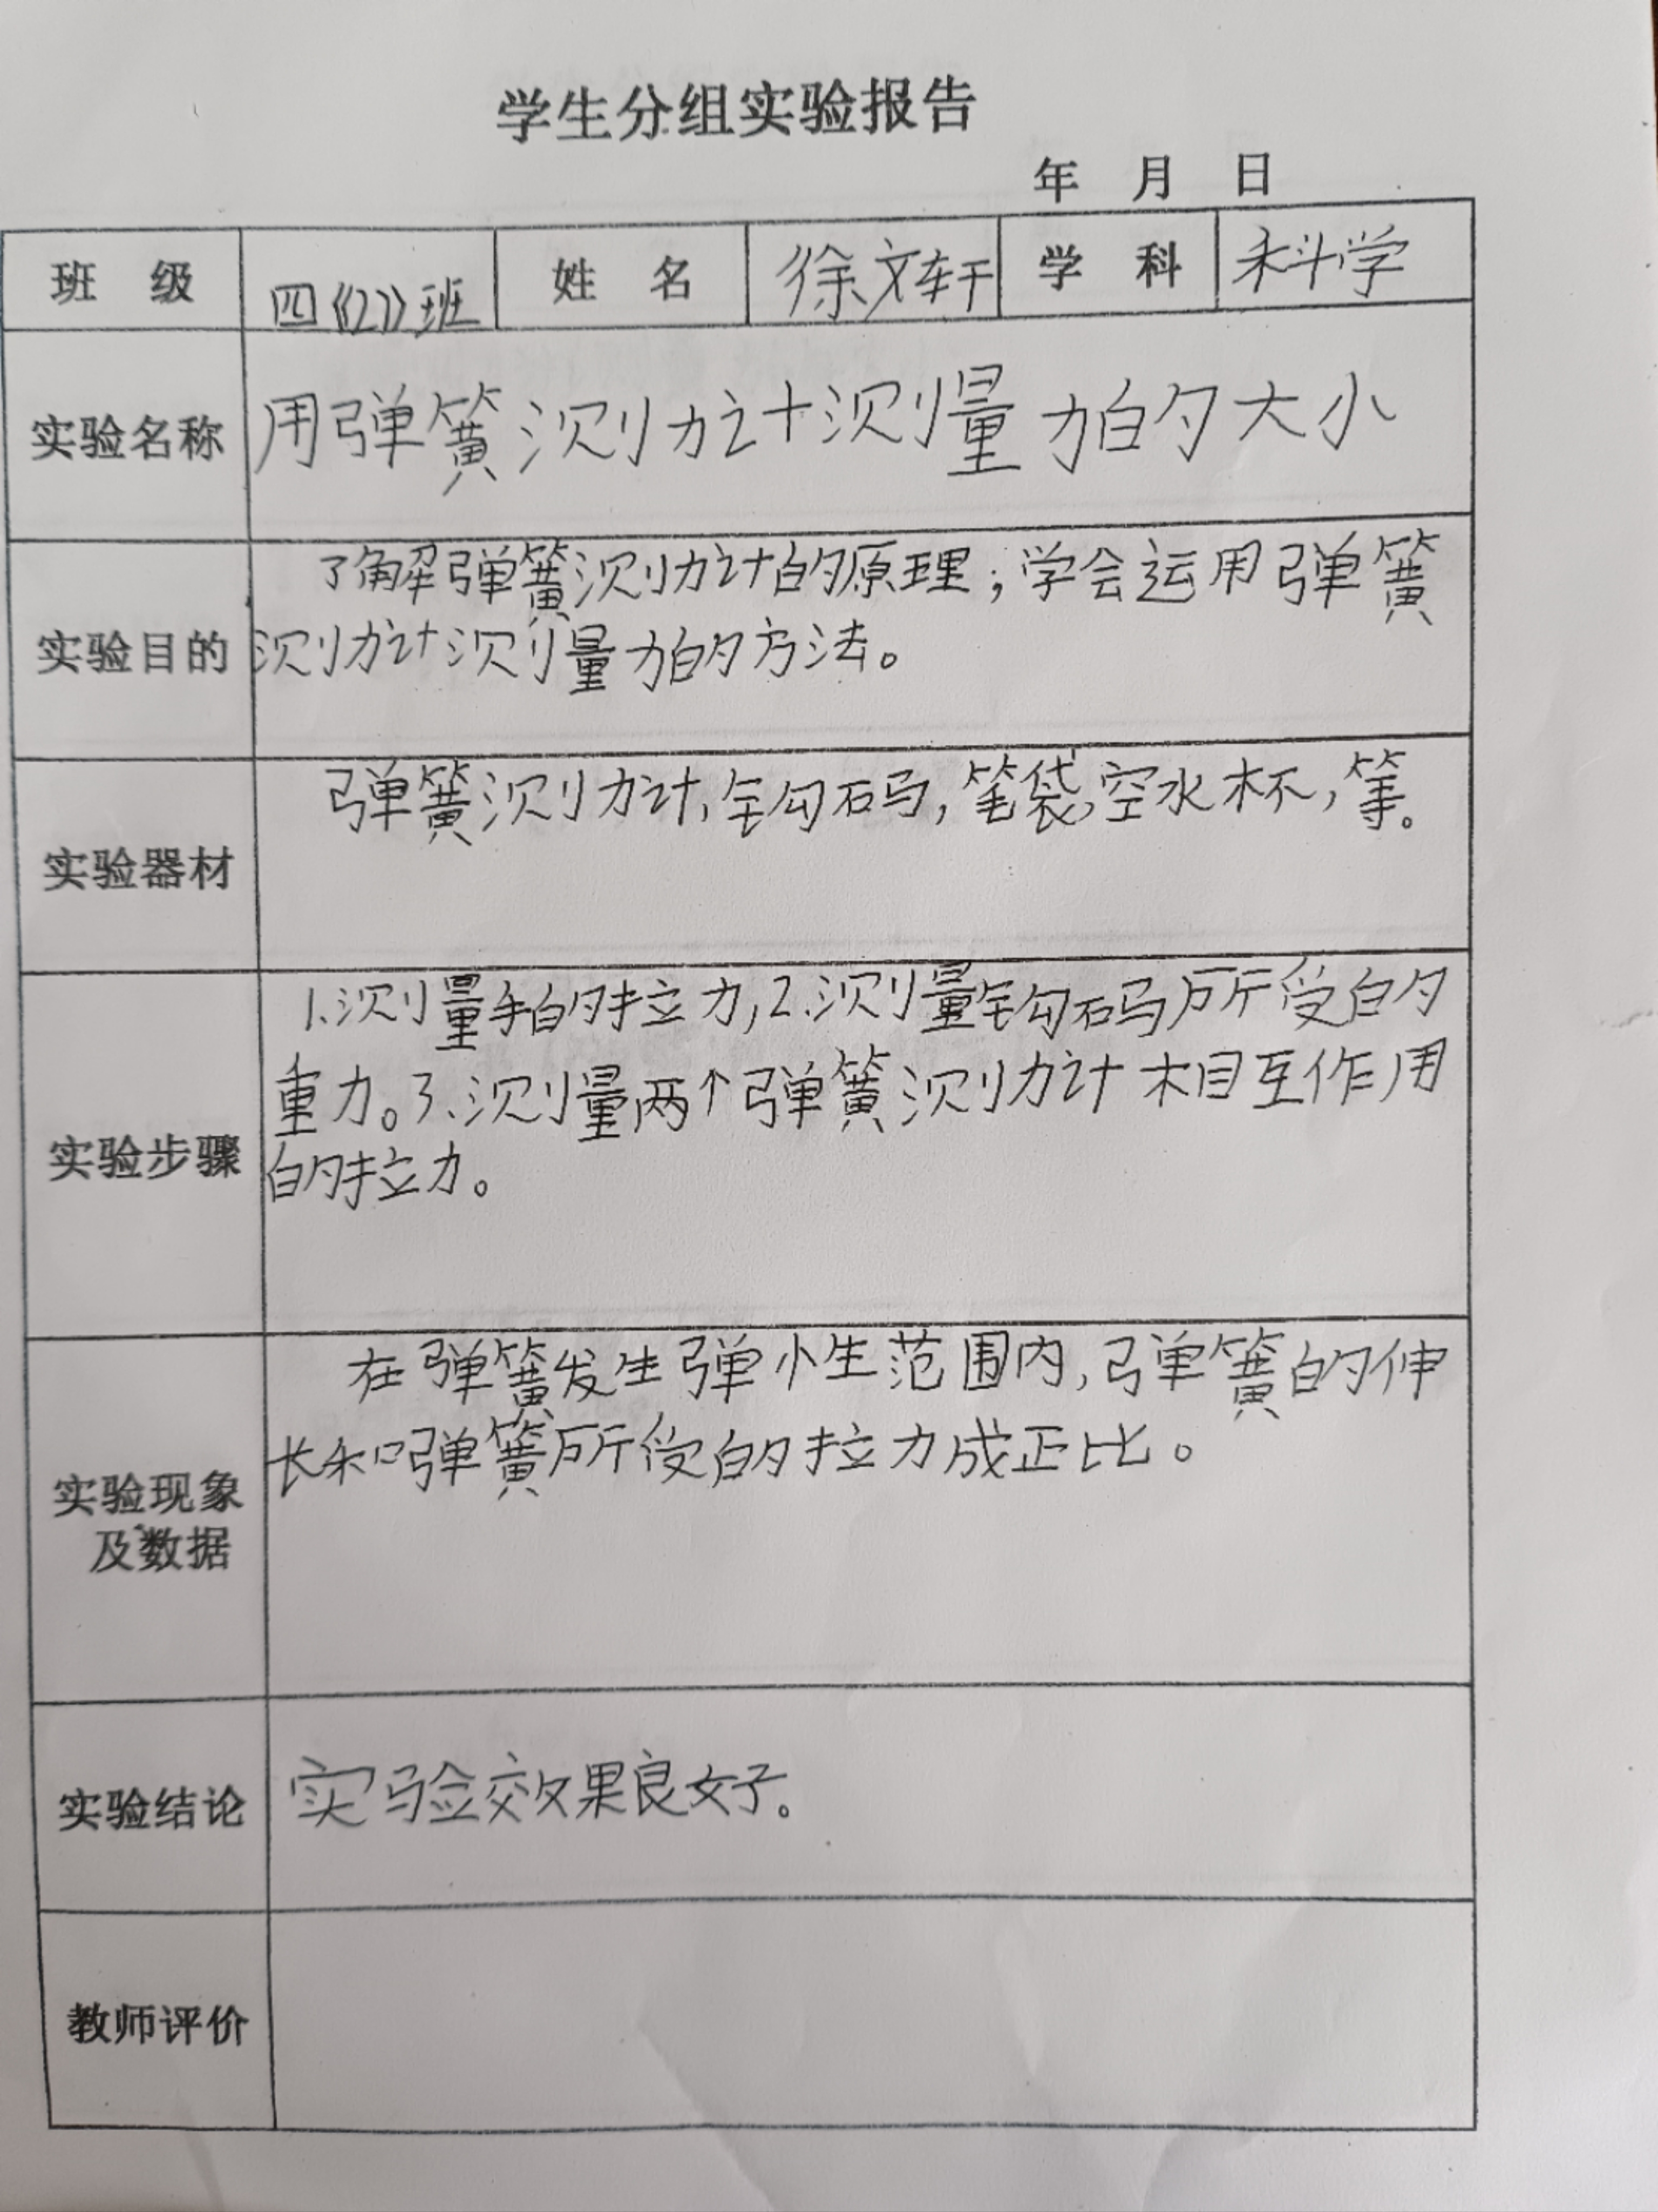 学生分组实验报告
年 月 日
班 级 四《(2)》班 姓 名 徐文轩 学 科 科学
实验名称 用弹簧测力计测量力的大小
实验目的 了解弹簧测力计的原理；学会运用弹簧
测力计测量力的方法。
实验器材 弹簧测力计，钩码，笔袋，空水杯，等。
实验步骤 1.测量手的拉力，2.测量钩码所受的
重力。3.测量两个弹簧测力计相互作用
的拉力。
实验现象
及数据
在弹簧发生弹性范围内，弹簧的伸
长和弹簧所受的拉力成正比。
实验结论 实验效果良好。
教师评价